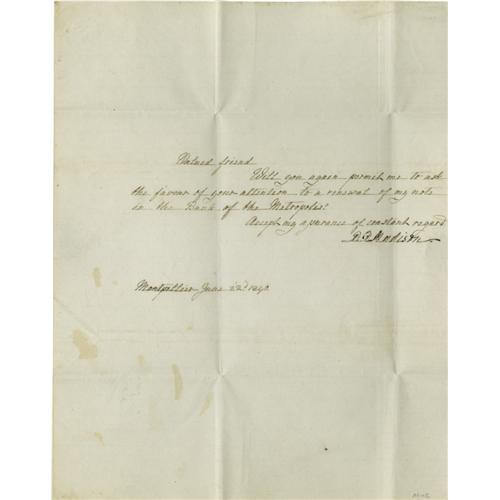 Valued friend
Will you again permit me to ask
the favour of your attention to a renewal of my note
in the Bank of the Metropolis?
Accept my assurance of constant regard
D. P. Madison
Montpellier June 22d 1840